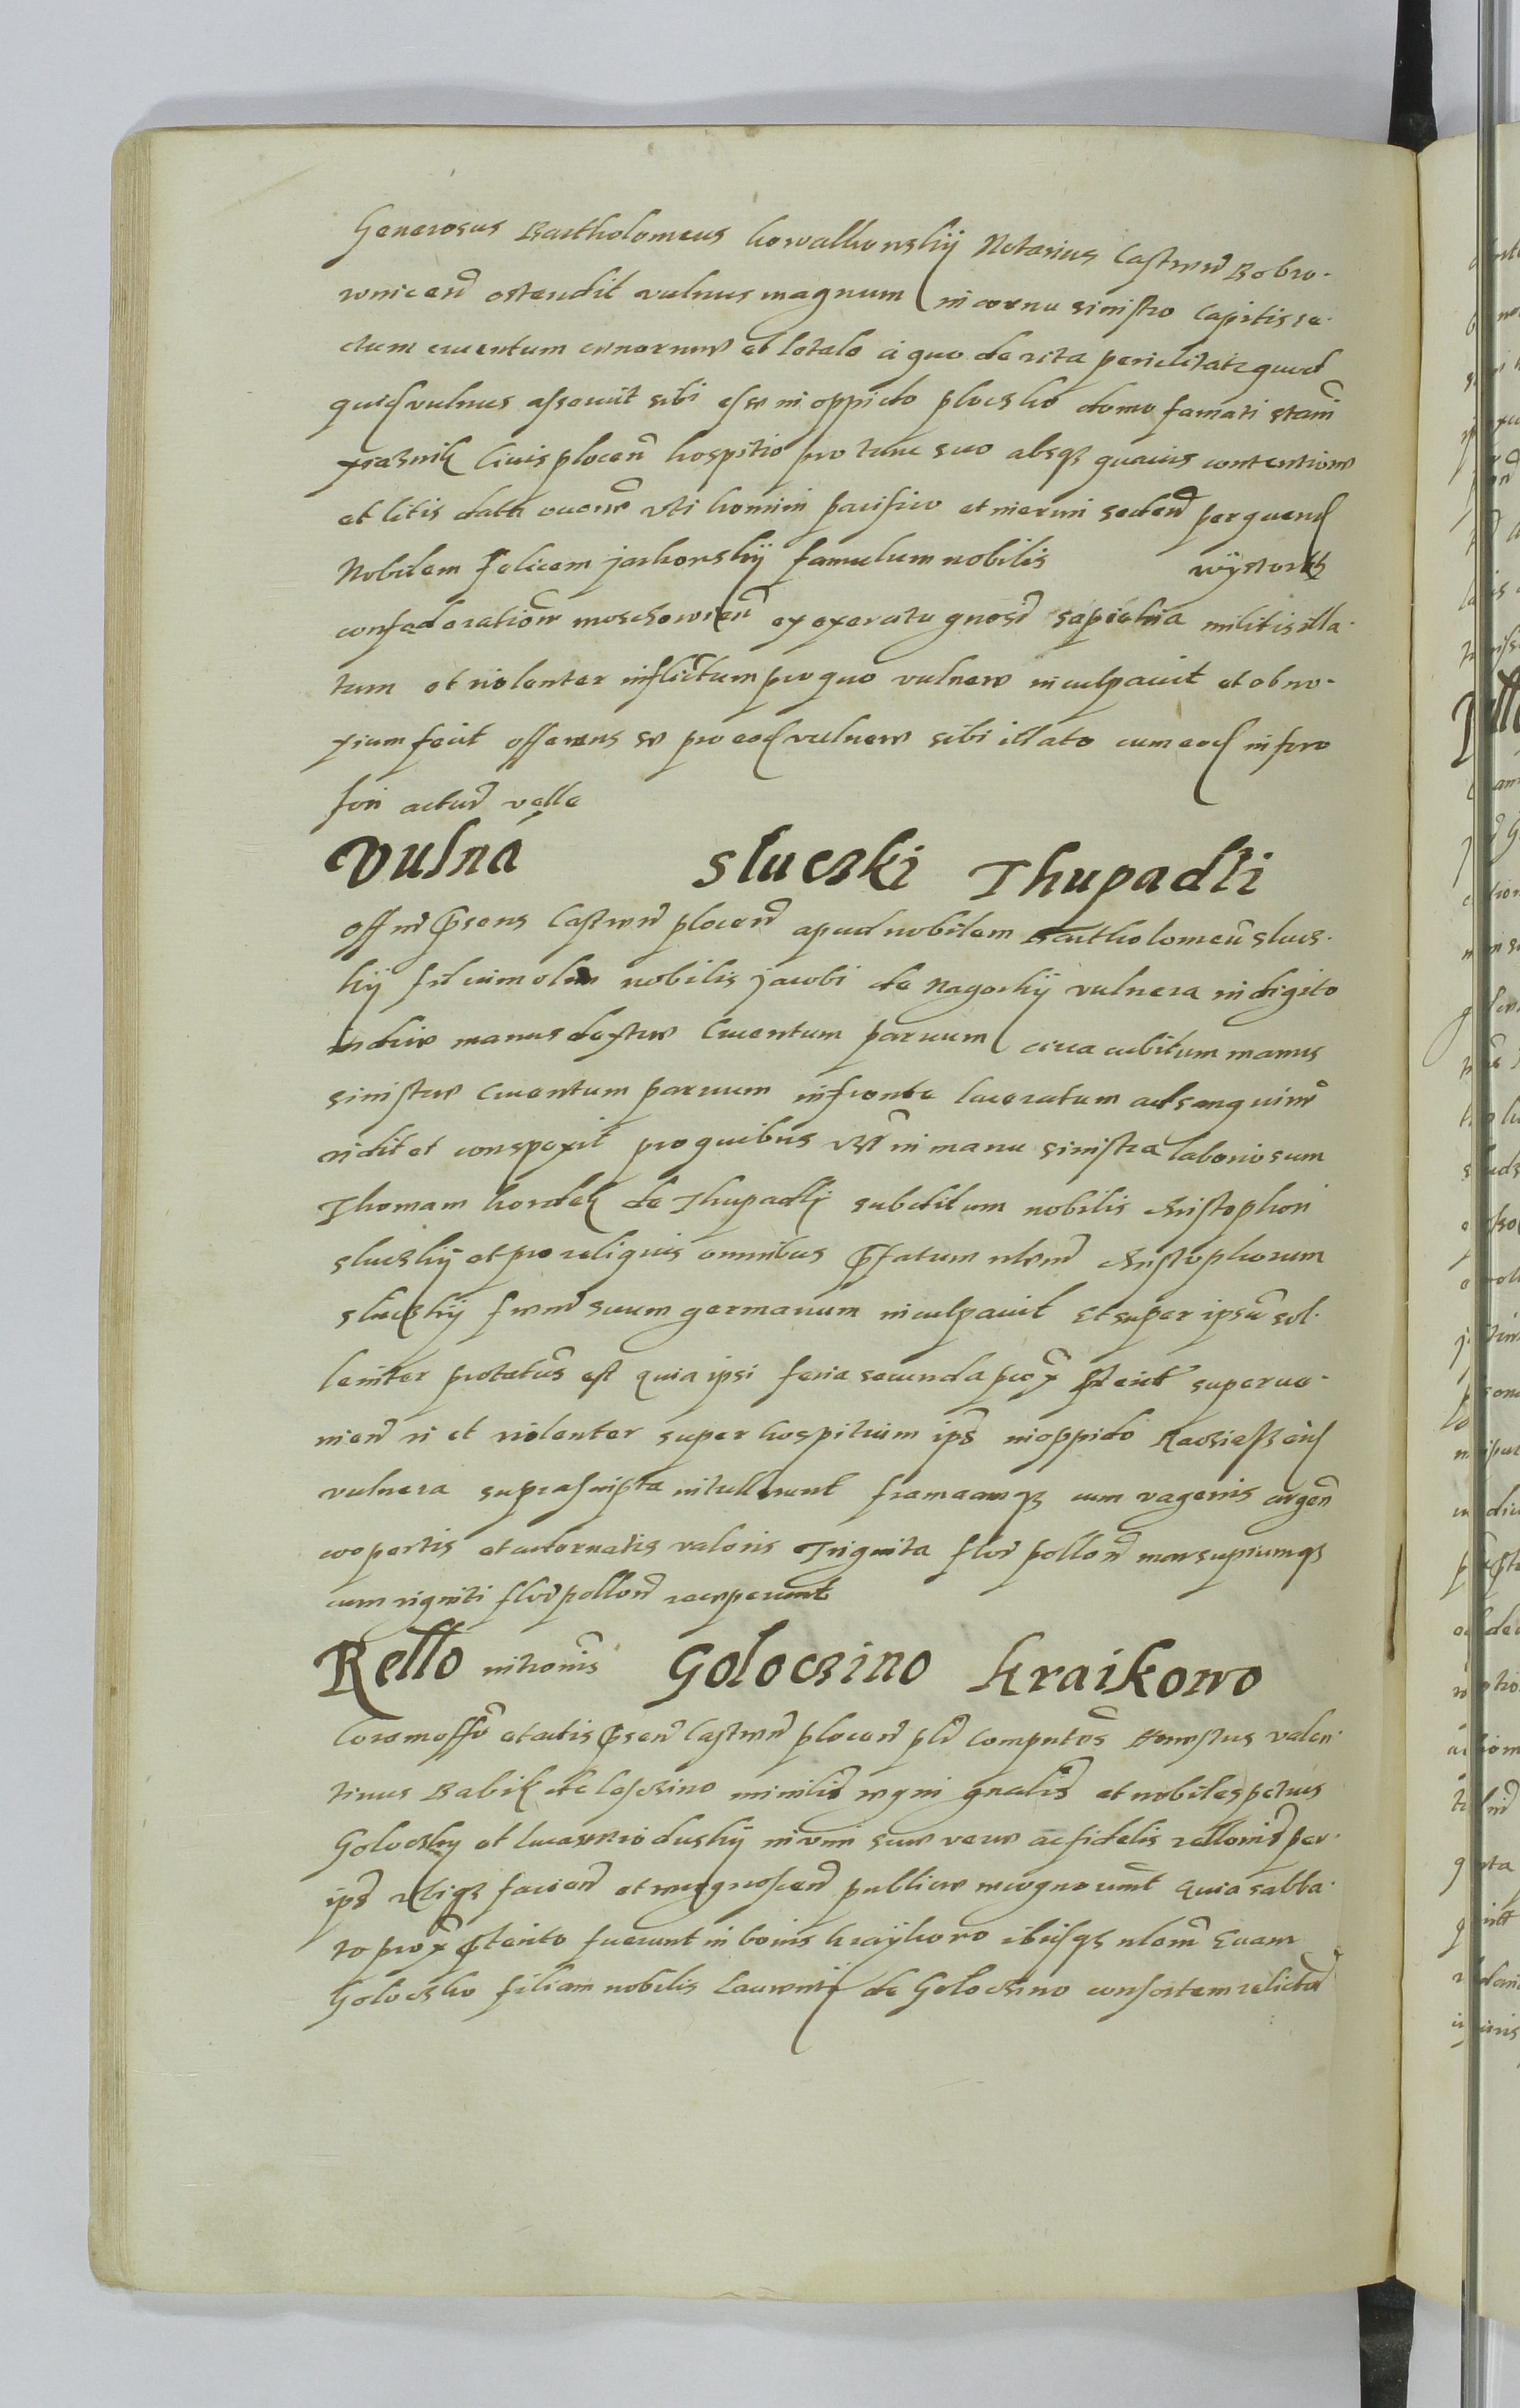 Generosus Bartholomeus kowalkowskij Notarius Castren Bobro-
wnicen ostendit vulnus magnum in cornu sinistro Capitis se-
ctum cruentum enorme et letale a quo de vita periclitatr quod
quid vulnus asseruit sibi esse in oppido plocsko domo famati stani
Civis plocen hospitio pro tunc suo absqz quavis contentione
et litis data occone uti homini pacifico et inermi seden per quend
Nobilem felicem jackowskij famulum nobilis
confederationis moschowien ex exercitu gnosi sapieha militis illa-
tum et violenter inflictum pro quo vulnere inculpavit et obno-
xium fecit offerens se pro eod vulnere sibi illato cum eod in foro
fori actur velle
Vulna Sluczki Thupadli
Off m psens Castren plocen apud nobilem Bartholomeu slucz-
kij filium olim nobilis jacobi de Nagorkij vulnera in digito
indice manus dextre Cruentum parvum circa cubitum manus
sinistre Cruentum parvum in fronte laceratum ad sanguine
vidit et conspexit pro quibus vstr in manu sinistra laboriosum
Thomam kordek de Thupadlij subditum nobilis christophori
sluczkij et pro reliquis omnibus pfatum nlem christophorum
sluczkij frem suum germanum inculpavit Et super ipsu sol-
leniter protatus est quia ipsi feria secunda prox pterit superve-
nien vi et violenter super hospitium ips in oppido Racziesz eisd
vulnera suprascripta intullerunt frameamqz cum vagenis argen
coopertis et adornatis valoris Triginta flor pollon marsupiumqz
cum viginti flor pollon receperunt
Rello intromis Goloczino kraikowo
Coram offo et actis psen Castren plocen pls Comparens Honestus valen-
tinus Babik de ministr regni gnalis et nobiles petrus
Goloczky et in vim sue vere ac fidelis rellonis per
ips facien et recognoscen publice recognoverut Quia sabba-
to prox pterito fuerunt in bonis kraijkowo ibidqz nlem Evam
Goloczko filiam nobilis Laurentij de Goloczino consortem relicta